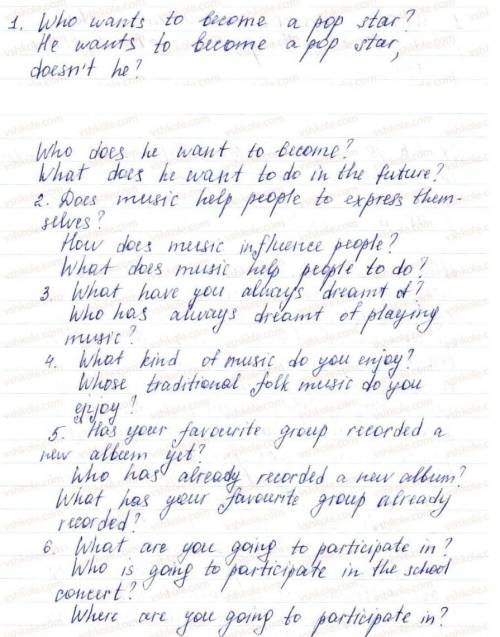 1. Who wants to become a pop star?
He wants to become a pop star,
doesn't he?
Who does he want to become?
What does he want to do in the future?
2. Does music help people to express them-
selves?
How does music influence people?
What does music help people to do?
3. What have you always dreamt of?
Who has always dreamt of playing
music?
4. What kind of music do you enjoy?
Whose traditional folk music do you
enjoy?
5. Has your favourite group recorded a
new album yet?
Who has already recorded a new album?
What has your favourite group already
recorded?
6. What are you going to participate in?
Who is going to participate in the school
concert?
Where are you going to participate in?